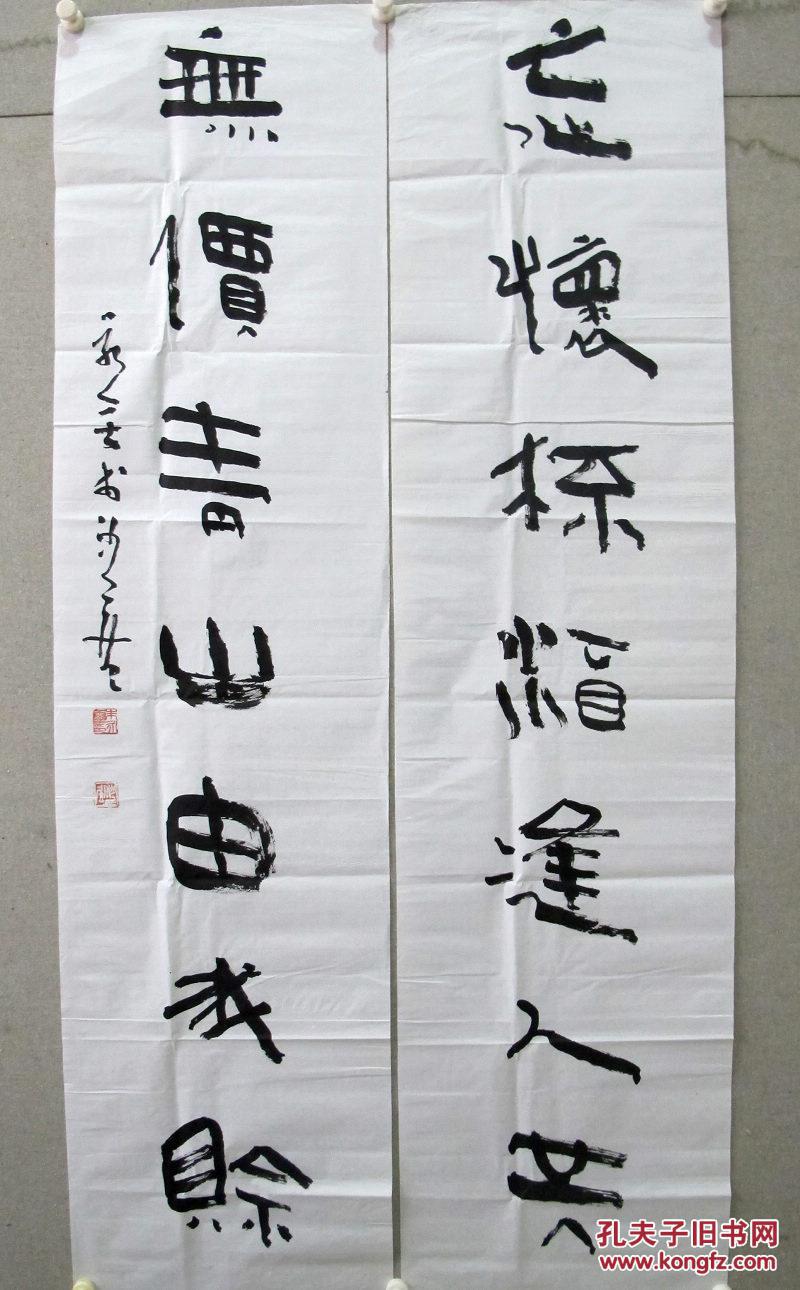 忘懷杯酒逢人共
無價青山由我賒
孔夫子旧书网
www.kongfz.com